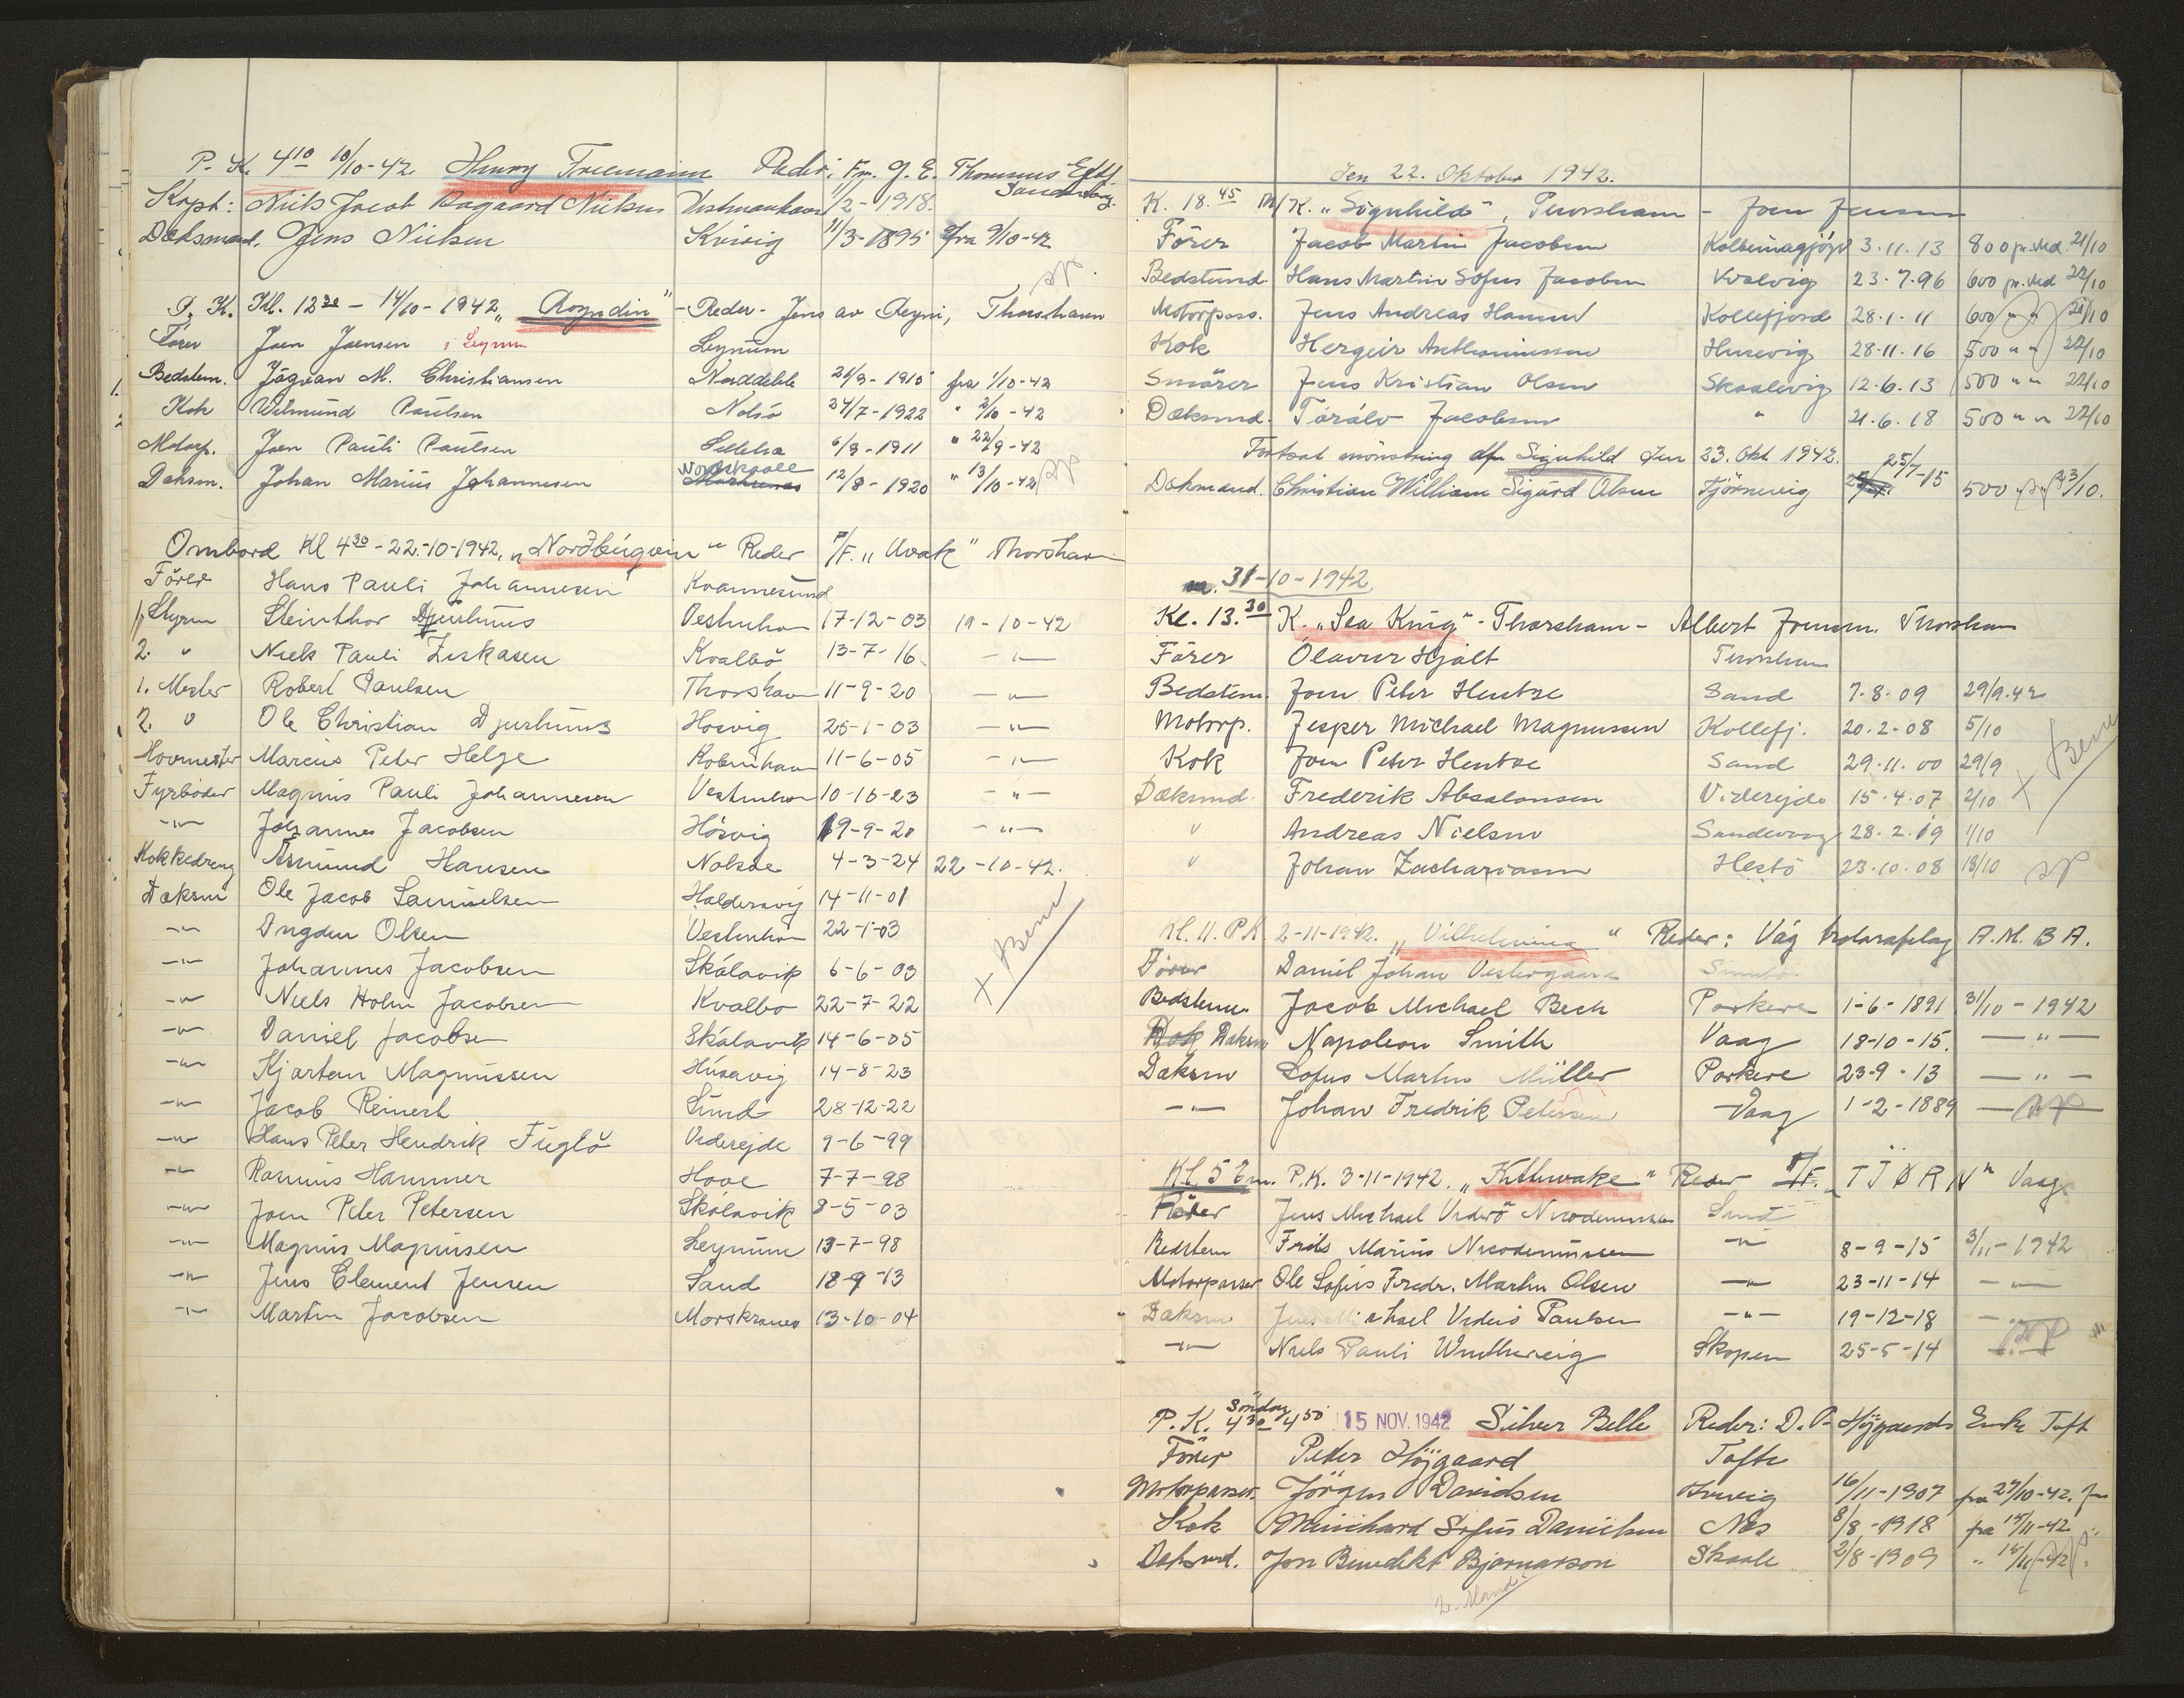 P. K. 4¹⁰ 10/10-42. Henry Freemann Reder: Fm. J. E. Thomsens Eftf.
Sandevåg.
Kapt: Niels Jacob Dagaard Nielsen Vestmanhavn 1/2-1918.
Dæksmand. Jens Nielsen Kvivig 11/3-1895 fra 9/10-42
P. K. Kl. 12³⁰ - 14/10-1942 „Royndin" - Reder - Jens av Reyni, Thorshavn
Förer Joen Joensen i Leynum Leynum
Bedstem. Jógvan M. Christiansen Norddeble 21/9-1915 fra 1/10-42
Kok Vilmund Paulsen Nolsö 24/7-1922 " 2/10-42
Motorp. Joen Pauli Paulsen Selletra 6/9-1911 " 22/9-42
Dæksm. Johan Marius Johannesen Nordskaale 12/8-1920 " 13/10-42
Ombord Kl 4³⁰-22-10-1942, „Nordbúgvin" Reder P/F. „Uvak" Thorshavn
Förer Hans Pauli Johannesen Kvannesund
1/ Styrm Steinthor Djurhuus Vestmhavn 17-12-03 19-10-42
2. " Niels Pauli Ziskasen Kvalbö 13-7-16 -"-
1. Mester Robert Paulsen Thorshavn 11-9-20 -"-
2. " Ole Christian Djurhuus Hosvig 25-1-03 -"-
Hovmester Marcus Peter Helge Köbenhavn 11-6-05 -"-
Fyrböder Magnus Pauli Johannesen Vestmhavn 10-10-23 -"-
-"- Johannes Jacobsen Hósvig 19-9-20 -"-
Kokkedreng Ásmund Hansen Nolsøe 4-3-24 22-10-42.
Dæksm Ole Jacob Samuelsen Haldersvig 14-11-01
-"- Dngdur Olsen Vestmhavn 22-1-03
-"- Johannes Jacobsen Skálavik 6-6-03
-"- Niels Holm Jacobsen Kvalbø 22-7-22
-"- Daniel Jacobsen Skálavik 14-6-05
-"- Kjartan Magnussen Húsavig 14-8-23
-"- Jacob Reinert Sund 28-12-22
-"- Hans Peter Hendrik Fuglö Viderejde 9-6-99
-"- Rasmus Hammer Hove 7-7-98
-"- Joen Peter Petersen Skálavik 8-5-03
-"- Magnus Magnussen Leynum 13-7-98
-"- Jens Clement Jensen Sand 18-9-13
-"- Martin Jacobsen Morskranes 13-10-04
X Benn
Den 22. Oktober 1942.
K. 18.45 M/K. „Signhild", Thorshavn - Joen Jensen
Förer Jacob Martin Jacobsen Kolbeinagjógv 3.11.13 800 pr. Md. 21/10
Bedstmd. Hans Martin Sofus Jacobsen Kvalvig 23.7.96 600 pr. Md 22/10
Motorpass. Jens Andreas Hansen Kollefjord 28.1.11 600 " " 21/10
Kok Hergeir Anthoniussen Husevig 28.11.16 500 " " 22/10
Smörer Jens Kristian Olsen Skaalevig 12.6.13 500 " " 22/10
Dæksmd. Tórálv Jacobsen " 21.6.18 500 " " 22/10
Fortsat mönstring af Signhild Den 23. Okt 1942.
Dækmand. Christian William Sigurd Olsen Tjörnevig 25/7-15 500 " " 23/10.
31-10-1942
Kl. 13.³⁰ K. „Sea King" - Thorshavn - Albert Joensen. Thorshavn
Förer Ólavur Hjalt Thorshavn
Bedstem. Joen Peter Hentze Sand 7.8.09 29/9.42
Motorp. Jesper Michael Magnussen Kollefj. 20.2.08 5/10
Kok Joen Peter Hentze Sand 29.11.00 29/9
Dæksmd. Frederik Absalonsen Viderejde 15.4.07 2/10
" Andreas Nielsen Sandevaag 28.2.19 1/10
" Johan Zachariasen Hestö 23.10.08 18/10
X Benn
Kl. 11. P.K. 2-11-1942. „Vilhelmina" Reder: Vág A.M.B.A.
Förer Daniel Johan Vestergaard Sumbö
Bedstem. Jacob Michael Bech Porkere 1-6-1891 31/10-1942
Dæksm Napoleon Smith Vaag 18-10-15. -"-
Dæksm Sofus Martin Müller Porkere 23-9-13 -"-
-"- Johan Fredrik Petersen Vaag 1-2-1889
Kl. 5 Em. P.K. 3-11-1942. „Kittiwake" Reder P/F. „TJØRN" Vaag
Förer Jens Michael Viderö Nicodemussen Sand
Bedstem Frits Marius Nicodemussen -"- 8-9-15 3/11-1942
Motorpasser Ole Sofus Fredr. Martin Olsen -"- 23-11-14 -"-
Dæksm Jens Michael Viderö Paulsen -"- 19-12-18 -"-
-"- Niels Pauli Winthereig Skopen 25-5-14
P. K. Söndag 4³⁰ 4⁵⁰ 15 NOV. 1942 Silver Belle Reder: D. P. Højgaards Enke Toft
Förer Peter Højgaard Tofte
Motorpasser. Jörgen Davidsen Trevig 16/11-1907 fra 27/10-42.
Kok Meinhard Sofus Danielsen Nes 8/8-1918 fra 15/11-42
Dæksmd. Jon Benedikt Bjarnarson Skaale 2/8-1909 " 15/11-42